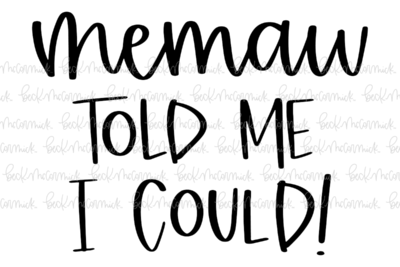 memaw
TOLD ME
I COULD!